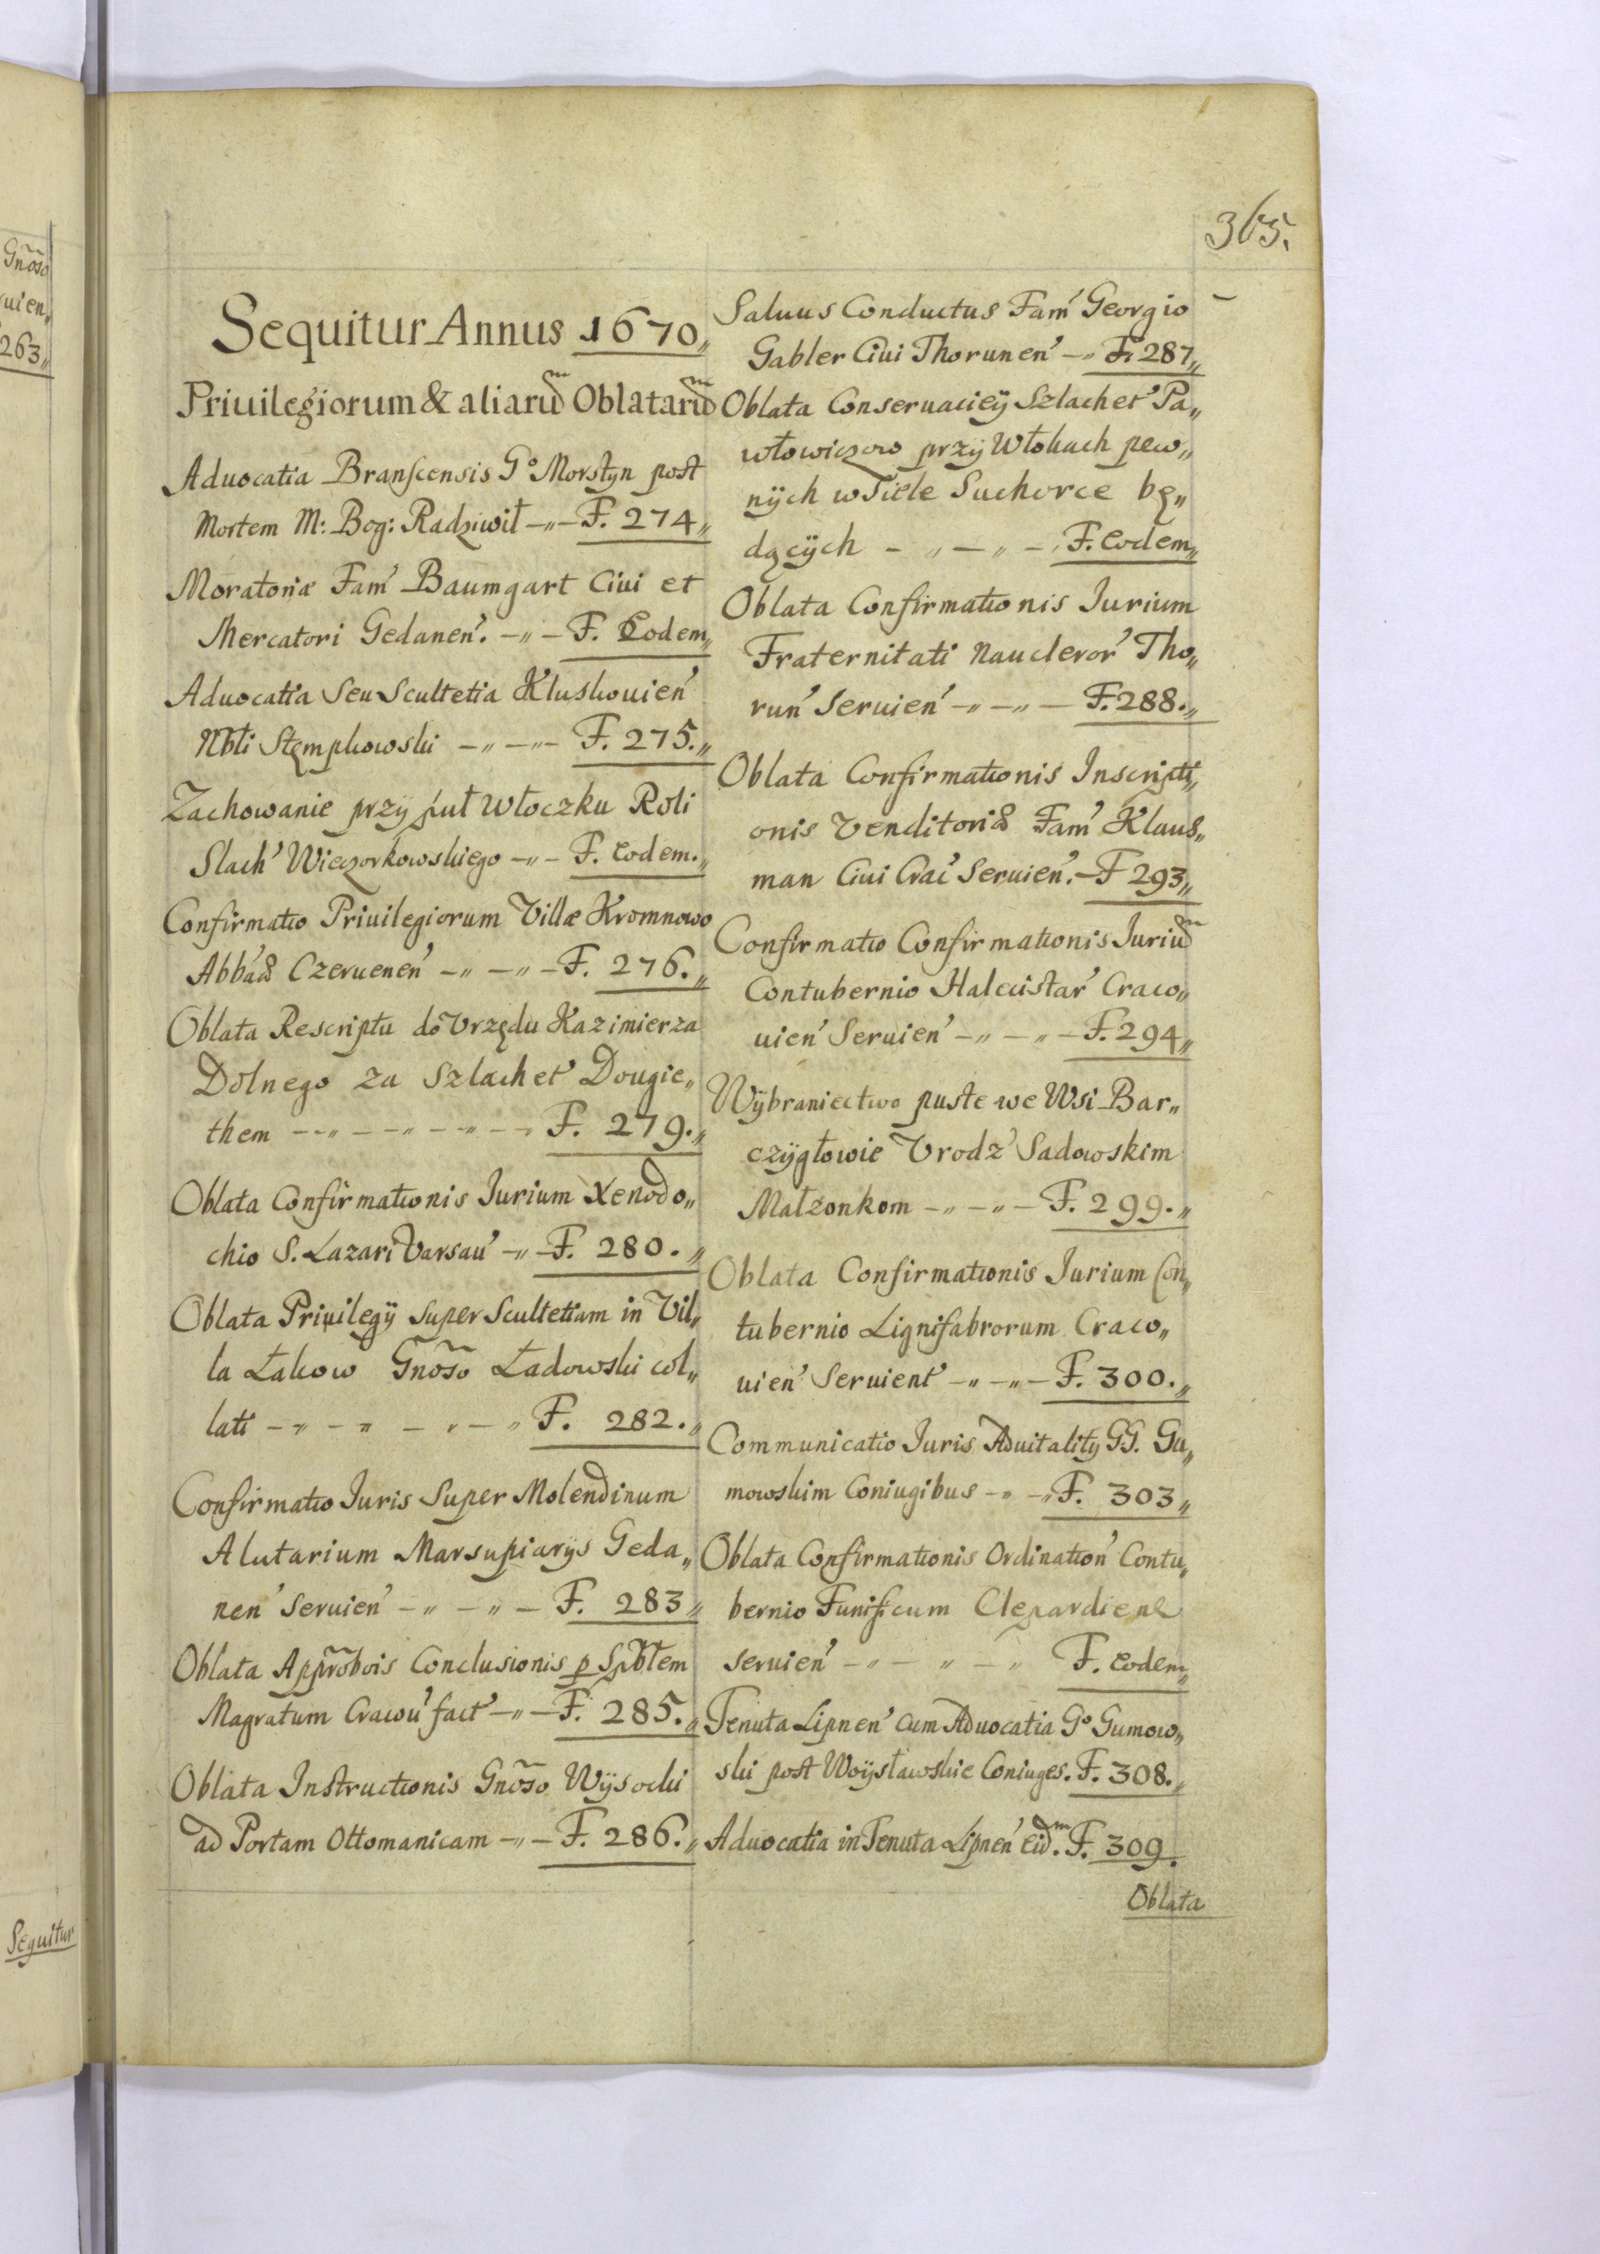 Gnõso
uien„
263„
Sequitur
365.
Sequitur Annus 1670„
Priuilegiorum & aliarũm Oblatarũm
Aduocatia Branscensis Gº Morstyn post
Mortem M: Bog: Radziwił -„- F. 274„
Moratoriæ Fam̕ Baumgart Ciui et
Mercatori Gedanen̕. -„- F. Eodem„
Aduocatia Seu Scultetia Kluskouien̕
Nbli Stęmpkowski -„-„- F. 275.„
Zachowanie przy puł Włoczku Roli
Slach̕ Wieczorkowskiego -„- F. eodem.„
Confirmatio Priuilegiorum Villæ Kromnowo
Abbaĕ Czeruenen̕ -„-„- F. 276.„
Oblata Rescriptu do Vrzędu Kazimierza
Dolnego za Szlachet̕ Dougie„
them -„-„-„- F. 279.„
Oblata Confirmationis Iurium Xenodo„
chio S. Lazari Varsau̕ -„- F. 280.„
Oblata Priuilegÿ super Scultetiam in Vil„
la Łakow Gnõso Ładowski col„
lati -„-„-„-„ F. 282.„
Confirmatio Iuris Super Molendinum
Alutarium Marsupiarÿs Geda„
nen̕ Seruien̕ -„-„- F. 283„
Oblata Apprõbois Conclusionis p Spblem
Magratum Cracou̕ fact̕ -„- F. 285.„
Oblata Instructionis Gnõso Wÿsocki
ad Portam Ottomanicam -„- F. 286.„
Saluus Conductus Fam̕ Georgio
Gabler Ciui Thorunen̕ -„ F. 287„
Oblata Conseruacieÿ Szlachet̕ Pa„
włowiczow przÿ Włokach pew„
nÿch w Siele Suchorce bę„
dącÿch -„-„- F. Eodem„
Oblata Confirmationis Iurium
Fraternitati Naucleror̕ Tho„
run̕ Seruien̕ -„-„- F. 288.„
Oblata Confirmationis Inscripti„
onis Venditoriæ Fam̕ Klaus„
man Ciui Crac̕ Seruien̕. - F 293„
Confirmatio Confirmationis Iuriũm
Contubernio Halecistar̕ Craco„
uien̕ Seruien̕ -„-„- F. 294„
Wÿbraniectwo puste we Wsi Bar„
czÿgłowie Vrodz̕ Sadowskim
Małzonkom -„-„- F. 299.„
Oblata Confirmationis Iurium Con„
tubernio Lignifabrorum Craco„
uien̕ Seruient̕ -„-„- F. 300.„
Communicatio Iuris Aduitalitÿ GG. Gu„
mowskim Coniugibus -„-„ F. 303„
Oblata Confirmationis Ordination̕ Contu„
bernio Funificum Clepardiens
Seruien̕ -„-„-„ F. Eodem„
Tenuta Lipnen̕ cum Aduocatia Gº Gumow„
ski post Woÿsławskie Coniuges. F. 308.„
Aduocatia in Tenuta Lipnen̕ Eidm. F. 309.
Oblata